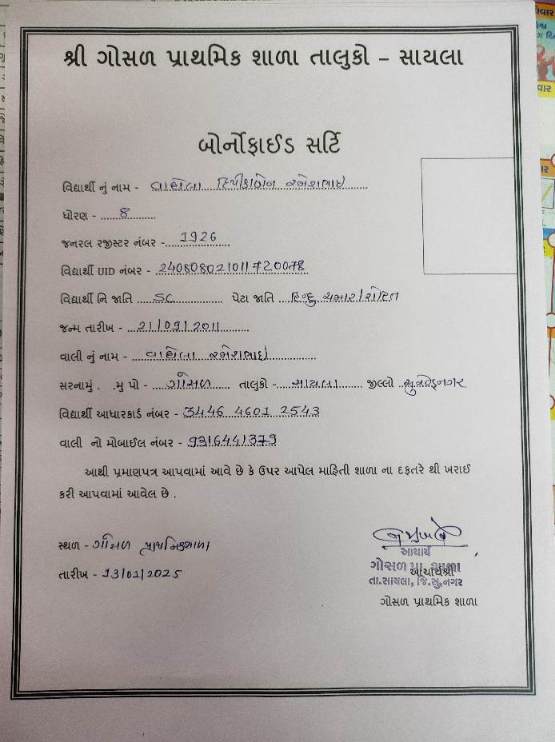 શ્રી ગોસળ પ્રાથમિક શાળા તાલુકો – સાયલા
બોર્નોફાઈડ સર્ટિ
વિદ્યાર્થી નું નામ - વાઘેલા દિપીકાબેન રમેશભાઇ
ધોરણ - 8
જનરલ રજીસ્ટર નંબર - 1926
વિદ્યાર્થી UID નંબર - 240808021011720078
વિદ્યાર્થી નિ જાતિ SC પેટા જાતિ હિન્દુ ચમાર/રોહિત
જન્મ તારીખ - 21/09/2011
વાલી નું નામ - વાઘેલા રમેશભાઇ
સરનામું . મુ પો - ગોસળ તાલુકો - સાયલા જીલ્લો સુરેન્દ્રનગર
વિદ્યાર્થી આધારકાર્ડ નંબર - 3446 4601 2543
વાલી નો મોબાઈલ નંબર - 9316441379
આથી પ્રમાણપત્ર આપવામાં આવે છે કે ઉપર આપેલ માહિતી શાળા ના દફતરે થી ખરાઈ
કરી આપવામાં આવેલ છે .
સ્થળ - ગોસળ પ્રાથમિકશાળા
તારીખ - 13/01/2025
આચાર્ય
ગોસળ પ્રા. શાળા
આચાર્યશ્રી
તા.સાયલા, જિ.સુ.નગર
ગોસળ પ્રાથમિક શાળા